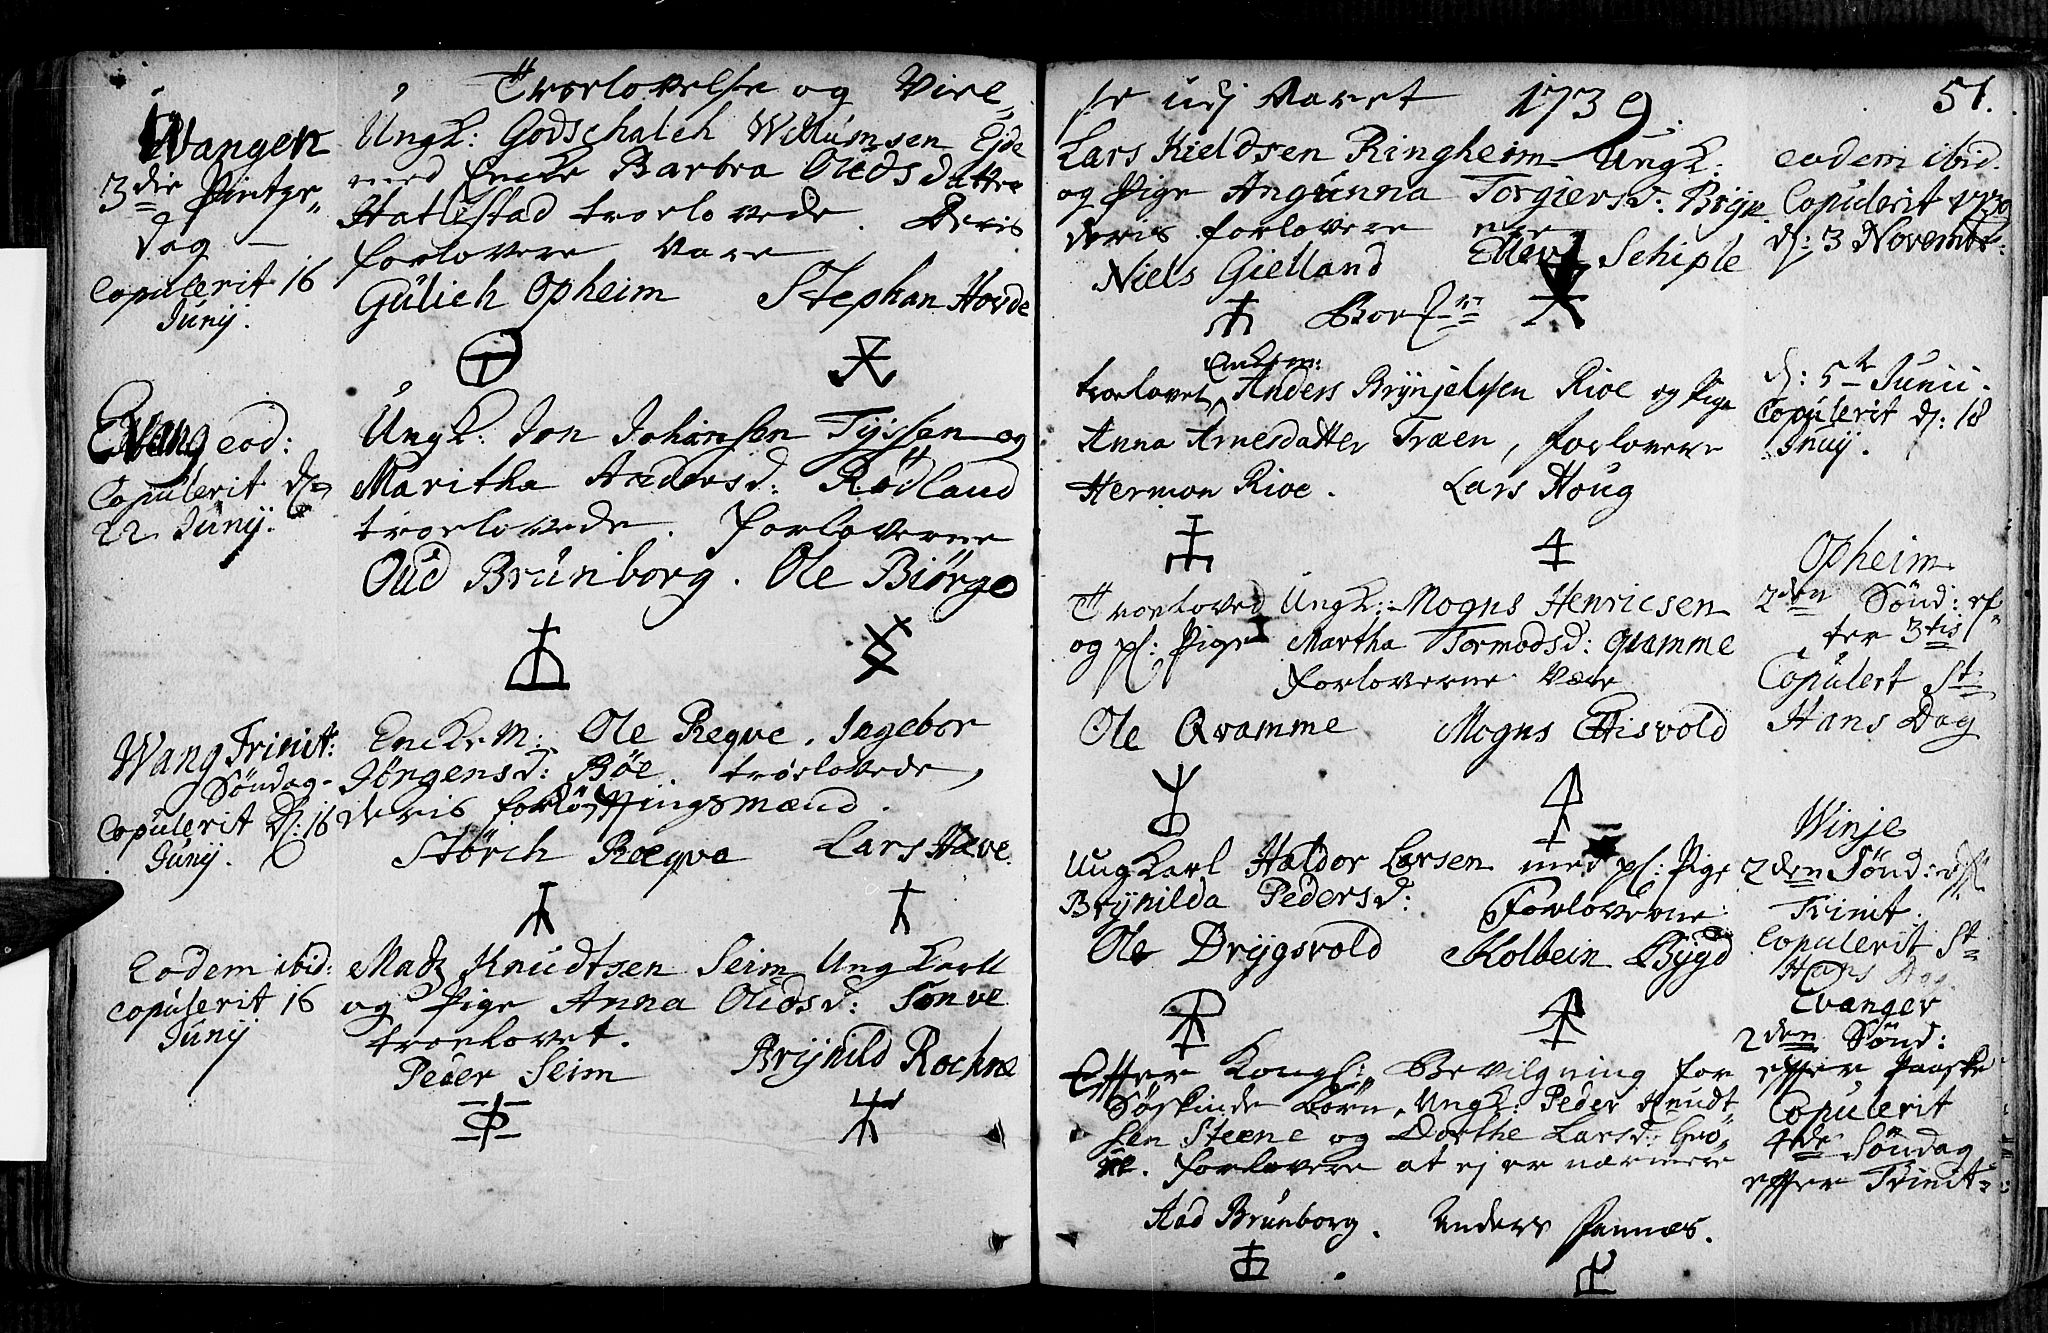 Troelovelse og Viel„
Wangen
3die Pintze„
dag —
Copulerit 16
Junij.
Ungk: Godschalch Willumsen Ejde
med Encke Barbra Olidsdatter
Hatlestad troelovede. Deris
forlovere vare
Gulich Opheim Stephan Horde
Evang eod:
Copulerit d:
22 Junij.
Ungk: Jon Johansen Tyssen og
Maritha Andersd: Rødland
troelovede. Forloverne
Oud Brunborg. Ole Biørge
Wang Trinit:
Søndag
Copulerit d: 16
Junij.
EnckeM: Ole Reqve. Ingebor
Jørgensd: Bøe. troelovede,
deris forløftingsmænd.
Størch Reqve Lars Hæve.
Eodem ibid:
Copulerit 16
Junij
Madz Knudtsen Seim Ungkarll
og Pige Anna Olidsd: Tonve
troelovet.
Peder Seim Brynild Rockne
se udj Aaret 1739. 51.
Lars Kieldsen Ringheim Ungk:
og Pige Angunna Torgiersd: Bryn.
deris forlovere ere
Niels Gielland Ellev Schiple
eodem ibid.
Copulerit 1739
d: 3 Novembr:
Enkem:
troelovet Anders Brynjelsen Rioe og Pige
Anna Arnesdatter Træen, forlovere
Hermon Rioe. Lars Houg
d: 5te Junii.
Copulerit d: 18
Junij.
Troeloved Ungk: Mogns Henricsen
og pl: Pige Martha Tormodsd: Qvamme
Forloverne Være
Ole Qvamme Mogns Ettisvold
Opheim
2den Sønd: ef„
ter 3tis
Copulert St:
Hans Dag
Ungkarl Haldor Larsen med pl: Pige
Brynilda Pedersd: Forloverne:
Ole Drygsvold Kolbein Bygd
Winje
2den Sønd: eff„
Trinit.
Copulerit St:
Hans Dag.
Effter Kongl: Bevilgning for
Søskinde børn, Ungk: Peder Knudt„
sen Steene og Dorthe Larsd: Grø„
e. forlovere at ej er nærmere
Aad Brunborg. Anders Fennæs.
Evanger
2den Sønd:
effter Paaske
Copulerit
4de Søndag
effter Trinit: